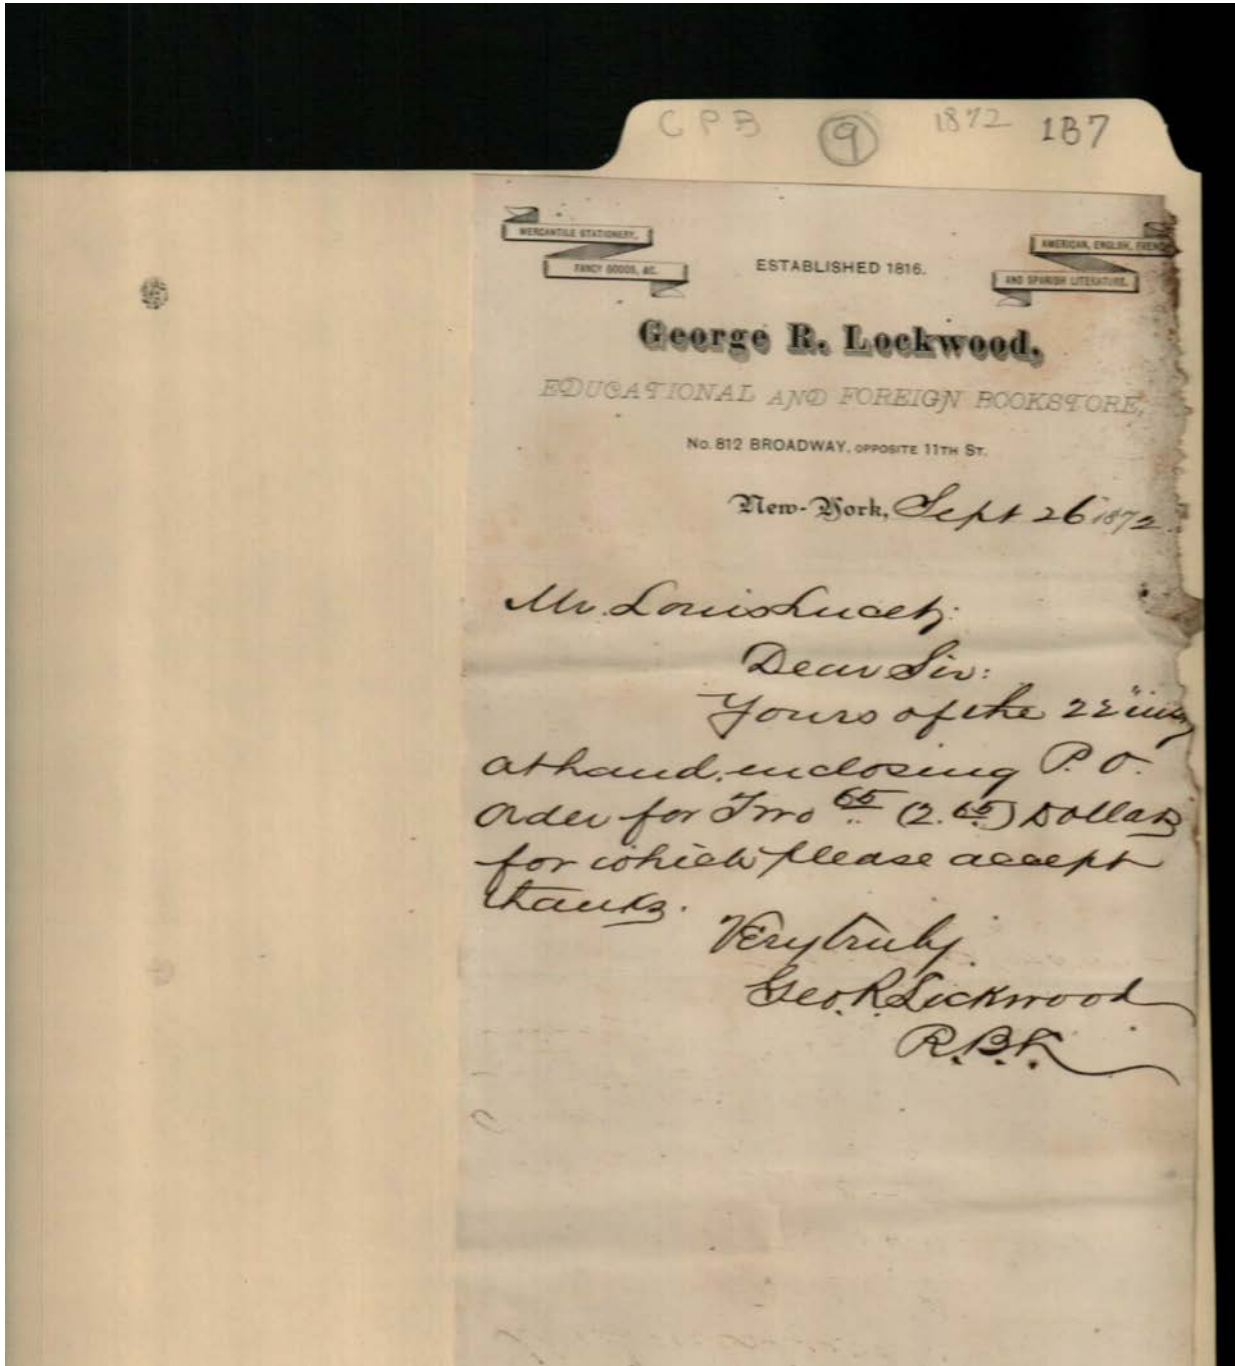 CPB 9 1872 1B7
MERCANTILE STATIONERY,
FANCY GOODS, &C.
ESTABLISHED 1816.
AMERICAN, ENGLISH, FRENCH
AND SPANISH LITERATURE.
George R. Lockwood,
EDUCATIONAL AND FOREIGN BOOKSTORE,
No. 812 BROADWAY, OPPOSITE 11TH ST.
New-York, Sept 26 1872.
Mr. Louis
Dear Sir:
Yours of the 22"
at hand, enclosing P. O.
Order for Two 65 (2.65) Dollars
for which please accept
thanks.
Very truly
Geo. R. Lockwood